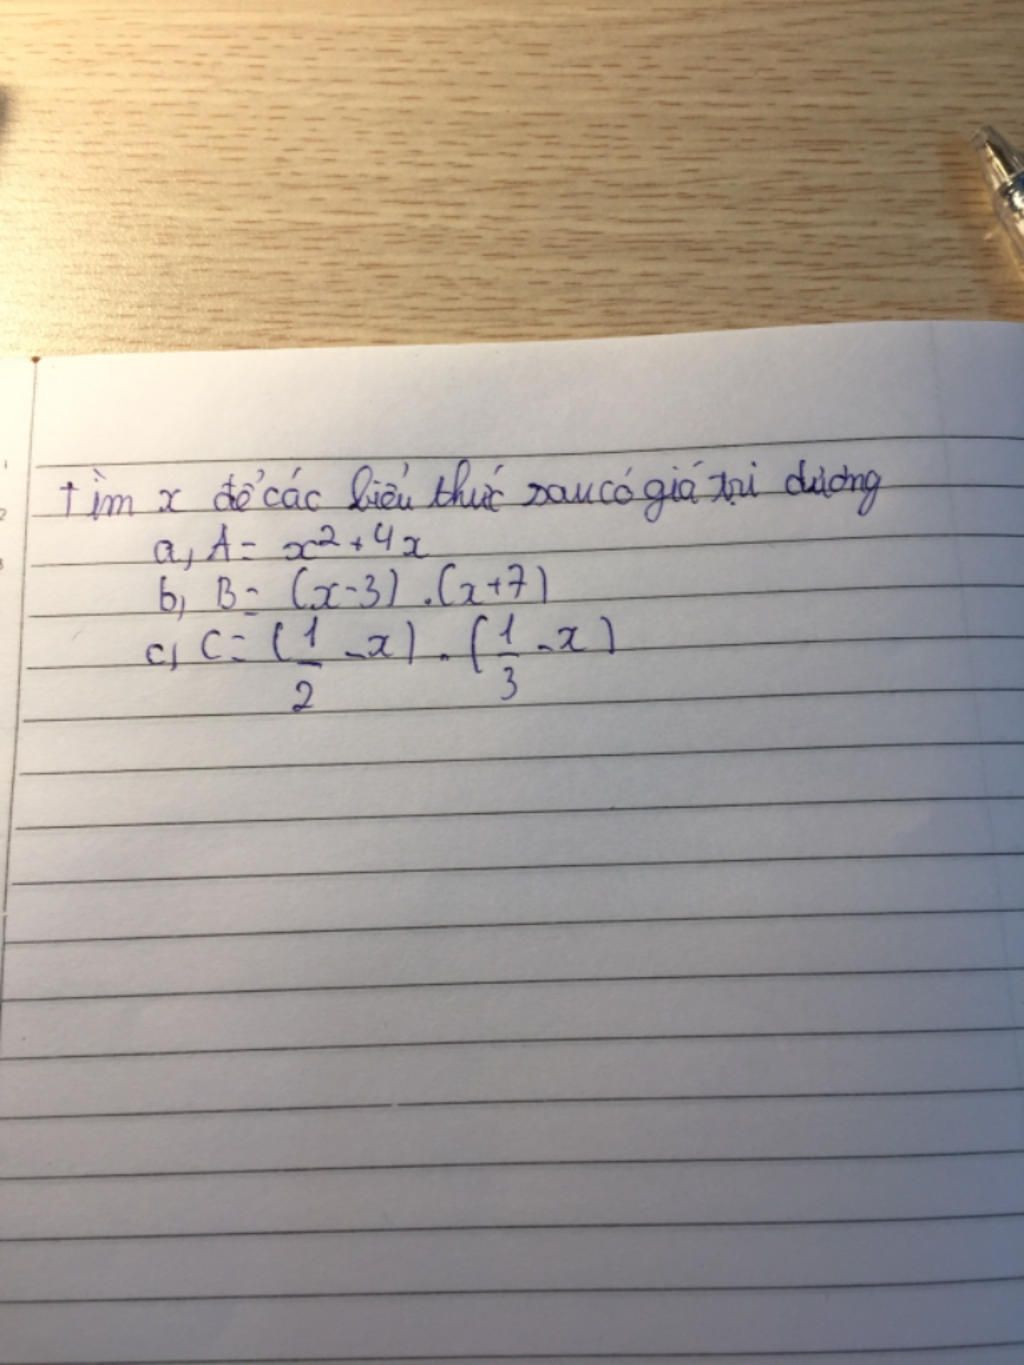 Tìm x để các biểu thức sau có giá trị dương
a, A = x² + 4x
b, B = (x-3) . (x+7)
c, C = (1/2 - x) . (1/3 - x)